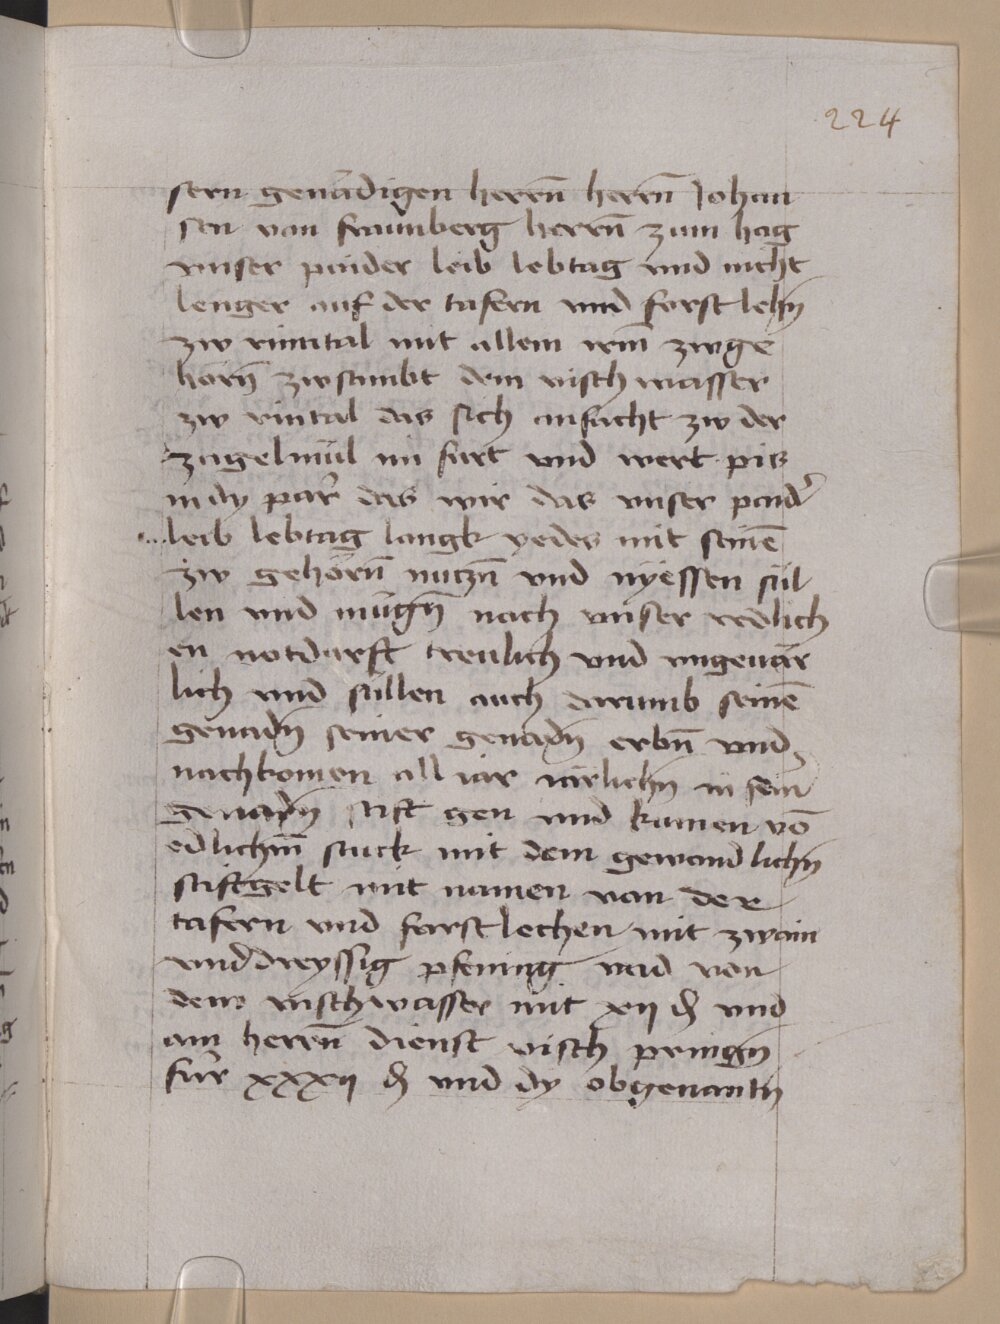 224
stern genadigen herrn̄ herrn̄ Johan
sen von fraunberg herrn̄ zum hag
vnser paider leib lebtag vnd nicht
lenger auf der tafern vnd forst lehn̄
zw rintal mit allem irm̄ zwge
hörn̄ zwsambt dem visch wasser
zw rintal das sich anfacht zw der
zagelmül im furt vnd wert pis
in dy par̄ das wir das vnser paider
leib lebtag langk yedes mit seinē
zw gehörn̄ nutzn̄ vnd nyessen sül
len vnd mügn̄ nach vnser redlich
en notdurft treulich vnd vngeuär
lich vnd süllen auch darumb seinē
genadn̄ seiner genadn̄ erbn̄ vnd
nachkomen all iar iärlichn̄ in sein̄
genadn̄ stift gen vnd kumen vō
edlichm̄ stuck mit dem gewondlichn̄
stiftgelt mit namen von der
tafern vnd forstlechen mit zwain
vnd dreyssig pfening vnd von
dem vischwasser mit xij d vnd
ain herrn̄ dienst visch pringn̄
für xxxij d vnd dy obgenantn̄